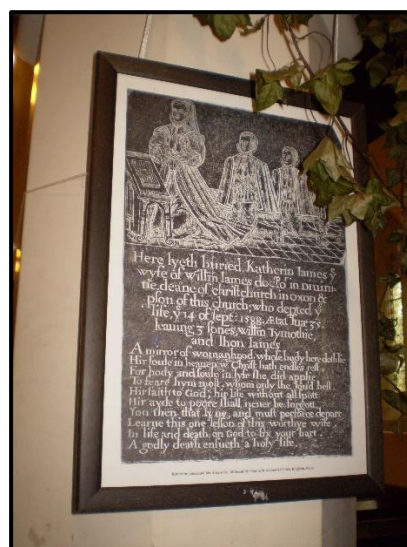 Here lyeth buried Katherin Iames yͤ
wyfe of Willm̄ Iames docᵗoʳ in Diuini-
tie, deane of christchurch in Oxon &
pſon of this church, who depted yˢ
life, yͤ 14 of ſept: 1588, Ætat ſuæ 35
leauing 3 ſones, Willm̄ Tymothie,
and Ihon Iames
A mirror of womanhood, whoſe body here doth lie
Hir ſoule in heauen wᵗ Chriſt hath endles reſt
For body and ſoule in lyfe ſhe did applie
To feare hym moſt, whom only ſhe loued beſt
Hir faith to God, hir life without all ſpott
Hir ayde to poore ſhall neuer be forgott
You then that lyue, and muſt perforce depart
Learne this one leſſon of this worthye wife
In life and death on God to fix your hart
A godly death enſueth a holy life.